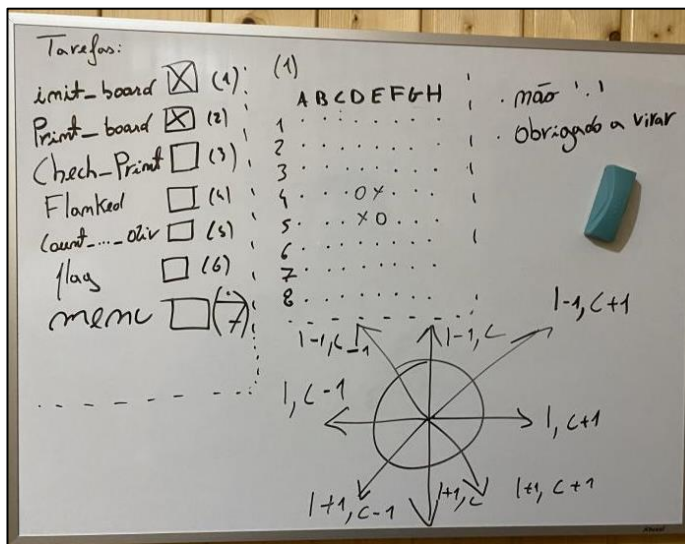 Tarefas:
init_board (1)
Print_board (2)
Chech_Print (3)
Flanked (4)
Count_...._div (5)
flag (6)
menu (7)
(1)
A B C D E F G H
1 . . . . . . . .
2 . . . . . . . .
3 . . . . . . . .
4 . . . O X . . .
5 . . . X O . . .
6 . . . . . . . .
7 . . . . . . . .
8 . . . . . . . .
. não '.'
. obrigado a virar
l-1, c-1
l-1, c
l-1, c+1
l, c-1
l, c+1
l+1, c-1
l+1, c
l+1, c+1